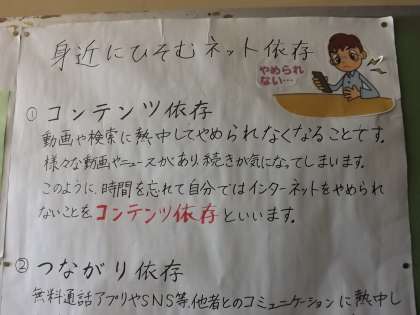 身近にひそむネット依存
やめられ
ない…
① コンテンツ依存
動画や検索に熱中してやめられなくなることです。
様々な動画やニュースがあり、続きが気になってしまいます。
このように、時間を忘れて自分ではインターネットをやめられ
ないことをコンテンツ依存といいます。
② つながり依存
無料通話アプリやSNS等、他者とのコミュニケーションに熱中し